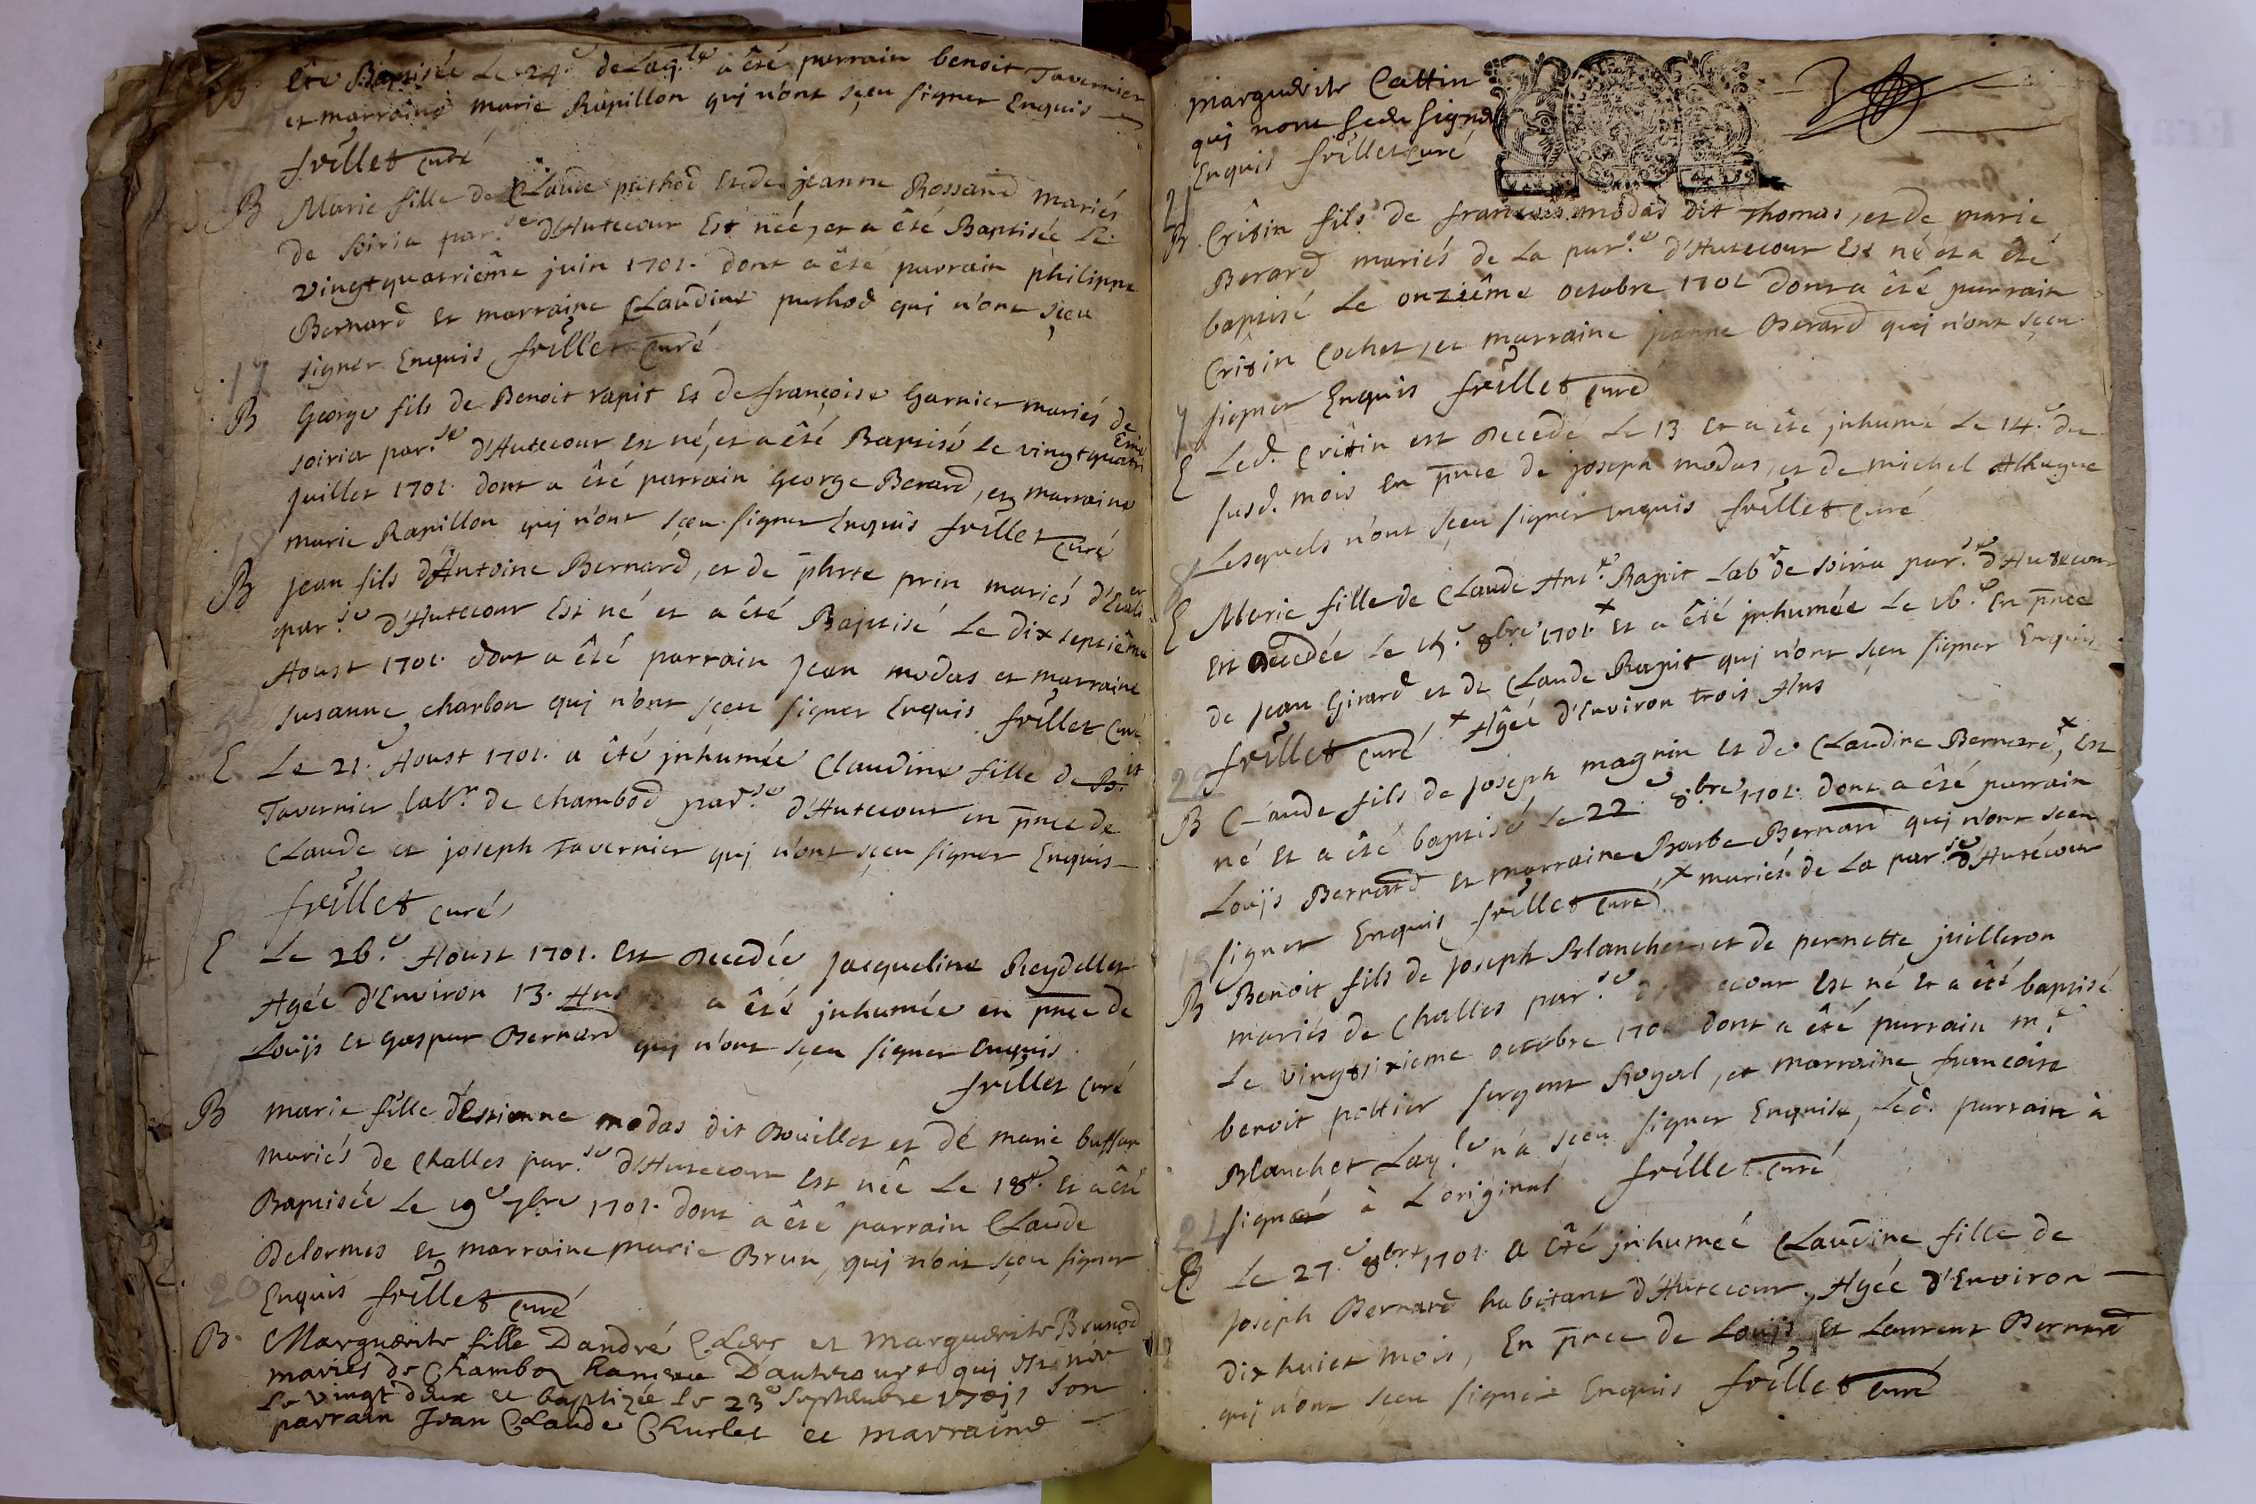 été Baptisée Le 24.e de Laq.le a été parrain benoit Tavernier
et marraine marie Rapillon quj n'ont sçeu signer Enquis
frillet curé
B Marie fille de Claude puthod et de jeanne Rossand mariés
de soiria par.se d'Hutecour Est née, et a êté Baptisée Le
vingtquatriême juin 1701. dont a êté parrain philippe
Bernard et marraine Claudine puthod quj n'ont sçeu
signer Enquis frillet Curé
17
B George fils de Benoit rapit Et de françoise Garnier mariés de
soiria par.se d'Hutecour Est né, et a êté Baptisé Le vingtquatri
ême
juillet 1701. dont a êté parrain George Berard, et marraine
marie Rapillon quj n'ont sçeu signer Enquis frillet Curé
18
B jean fils d'Antoine Bernard, et de phrte prin mariés
par.se d'Hutecour Est né et a êté Baptisé Le dix septiême
Aoust 1701. dont a êté parrain jean modas et marraine
susanne charlon quj n'ont sçeu signer Enquis frillet Curé
E Le 21.e Aoust 1701. a êté jnhumée Claudine fille de B.it
Tavernier lab.r de chambod par.se d'Hutecour en pnce de
Claude et joseph Tavernier quj n'ont sçeu signer Enquis
frillet curé
E Le 26.e Aoust 1701. Est Decedée jacqueline Reydellet
Agée d'Environ 13. Ans a êté jnhumée en pnce de
Loujs et gaspar Bernard quj n'ont sçeu signer Enquis
frillet curé
B marie fille d'Estienne modas dit Bouillet et dé marie buffar
mariés de Challes par.se d'Hutecour Est née Le 18.e Et a êté
Baptisée Le 19e 7bre 1701. dont a êté parrain Claude
Delormes et marraine marie Brun, quj n'ont sçeu signer
20
Enquis frillet curé
B. Marguerite fille Dandré Clerc et marguerite Brunod
mariés de Chambod Dautecourt quj est née
Le vingt deux et baptizée Le 23e Septembre 1701 Son
parrain Jean Claude Churlet et marraine
marguerite Cattin
quj nont sceu signer
Enquis frillet curé
21
B. Critin fils de françois modas dit Thomas, et de marie
Berard mariés de La par.se d'Hutecour Est né et a êté
baptisé Le onziême octobre 1701 dont a êté parrain
Critin Cochet, et marraine jeanne Berard quj n'ont sçeu
7 signer Enquis frillet curé
E Led. Critin est Decedé Le 13 Et a êté jnhumé Le 14.e du
susd. mois En pnce de joseph modas, et de michel Alhugue
Lesquels n'ont sçeu signer enquis frillet curé
8
E Marie fille de Claude Ant.e Rapit Lab.r de soiria par.se d'Hutecour
Est Decedée Le 15.e 8bre 1701. x Et a êté jnhumée Le 16.e En pnce
de jean Girard et de Claude Rapit quj n'ont sçeu signer Enquis
frillet curé x Agée d'Environ trois Ans
22
B Claude fils de joseph magnin Et de Claudine Bernard x, Est
né Et a êté baptisé Le 22.e 8bre 1701. dont a êté parrain
Louys Bernard et marraine Barbe Bernard quj n'ont sçeu
signer Enquis frillet curé, x mariés de La par.se d'Hutecour
B Benoit fils de joseph Blanchet, et de pernette juilleron
mariés de Challes par.se Est né Et a êté baptisé
Le vingtsixieme octobre 170 dont a êté parrain m.e
benoit pottier sergent Royal, et marraine francoise
Blanchet Laq.le n'a sceu signer Enquise, Led. parrain à
signé à L'original frillet curé
E Le 27.e 8bre 1701. a êté jnhumée Claudine fille de
joseph Bernard habitant d'Hutecour, Agée d'Environ
dixhuict mois, En pnce de Louys Et Laurent Bernard
quj n'ont sceu signer Enquis frillet curé